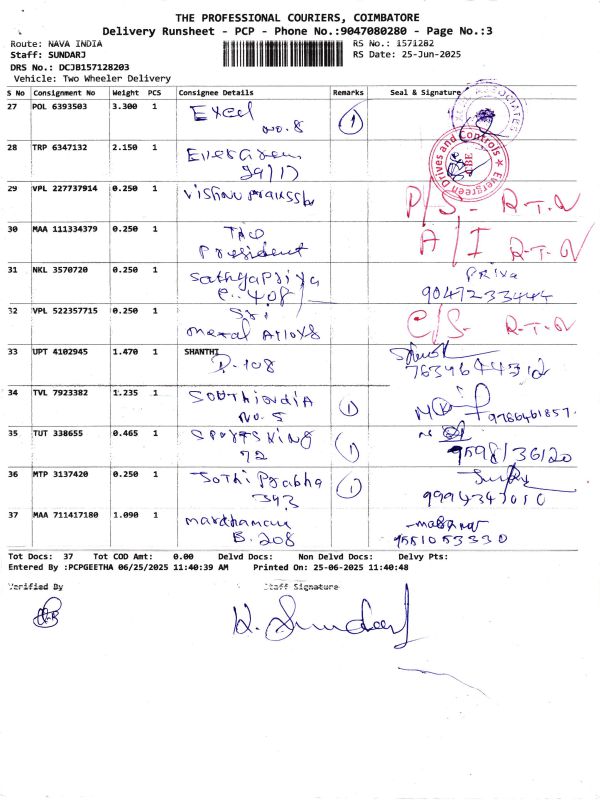 THE PROFESSIONAL COURIERS, COIMBATORE
Delivery Runsheet - PCP - Phone No.:9047080280 - Page No.:3
Route: NAVA INDIA
RS No.: 1571282
Staff: SUNDARJ
RS Date: 25-Jun-2025
DRS No.: DCJB157128203
Vehicle: Two Wheeler Delivery
S No Consignment No Weight PCS Consignee Details Remarks Seal & Signature
27 POL 6393503 3.300 1 Excel 1
no.8
28 TRP 6347132 2.150 1 Evergreen
Evergreen Drives and Controls
29 VPL 227737914 0.250 1 P/S- R-T-N
30 MAA 111334379 0.250 1 The A/I R-T-N
President
31 NKL 3570720 0.250 1 Sathyapriya PRIYA
C. 408 9047233444
32 VPL 522357715 0.250 1 Sri C/S- R-T-N
metal Alloys
33 UPT 4102945 1.470 1 SHANTHI
D.108
34 TVL 7923382 1.235 1 South india 1
No. 5 9786461857
35 TUT 338655 0.465 1 SPORTS KING 1
72 9598136120
36 MTP 3137420 0.250 1 Jothi Prabha 1
393
37 MAA 711417180 1.090 1
B.208 9551053330
Tot Docs: 37 Tot COD Amt: 0.00 Delvd Docs: Non Delvd Docs: Delvy Pts:
Entered By :PCPGEETHA 06/25/2025 11:40:39 AM Printed On: 25-06-2025 11:40:48
Verified By Staff Signature